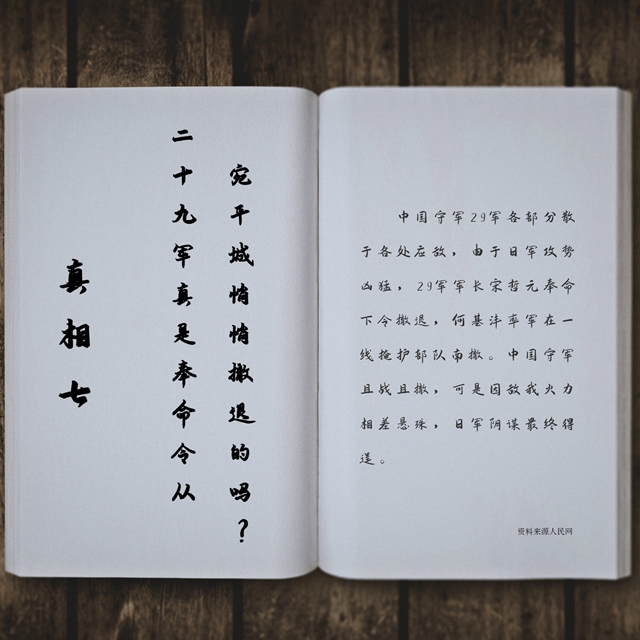 真相七
二十九军真是奉命令从
宛平城悄悄撤退的吗？
中国守军29军各部分散
于各处应敌，由于日军攻势
凶猛，29军军长宋哲元奉命
下令撤退，何基沣率军在一
线掩护部队南撤。中国守军
且战且撤，可是因敌我火力
相差悬珠，日军阴谋最终得
逞。
资料来源人民网